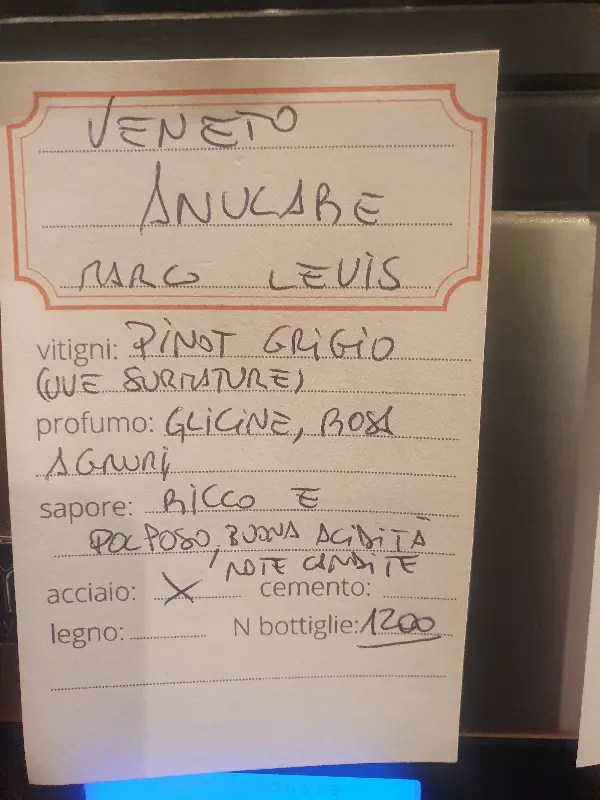 VENETO
ANULARE
MARCO LEVIS
vitigni: PINOT GRIGIO
(UVE SURMATURE)
profumo: GLICINE, ROSA
AGRUMI
sapore: RICCO E
POLPOSO, BUONA ACIDITÀ
NOTE CANDITE
acciaio: X cemento:
legno: N bottiglie: 1200